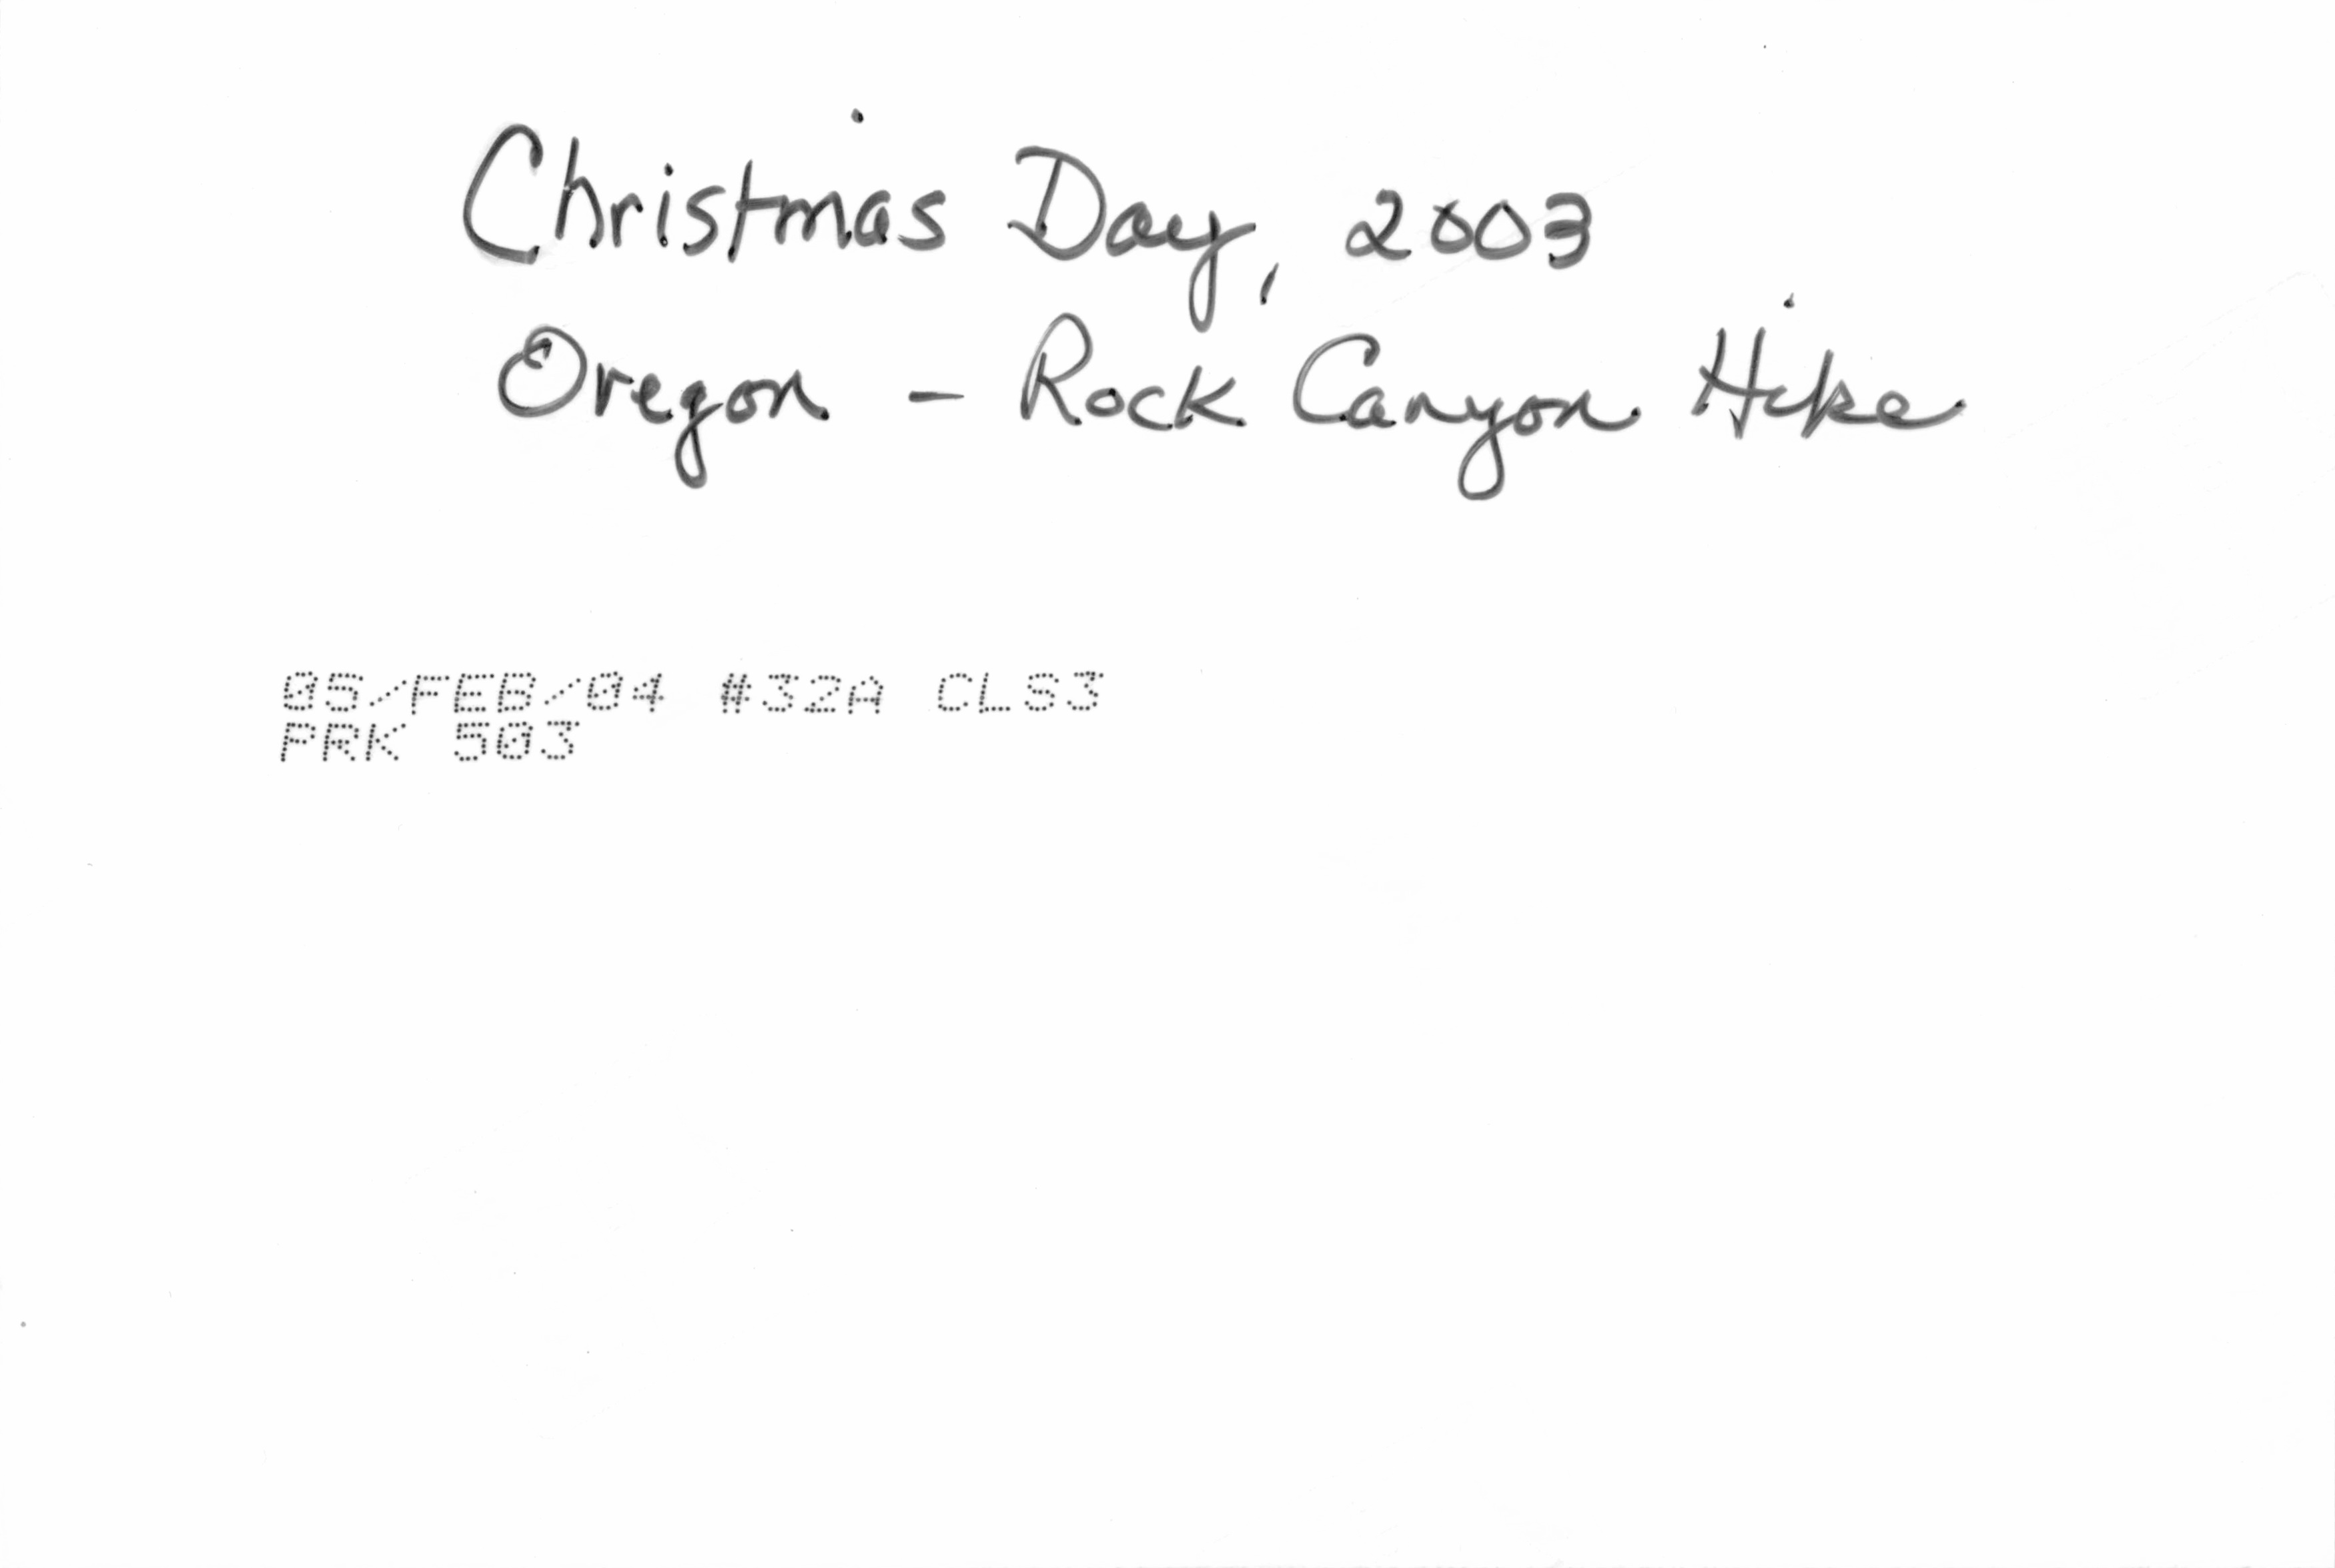 Christmas Day, 2003
Oregon - Rock Canyon Hike
05/FEB/04 #32A CLS3
PRK 503